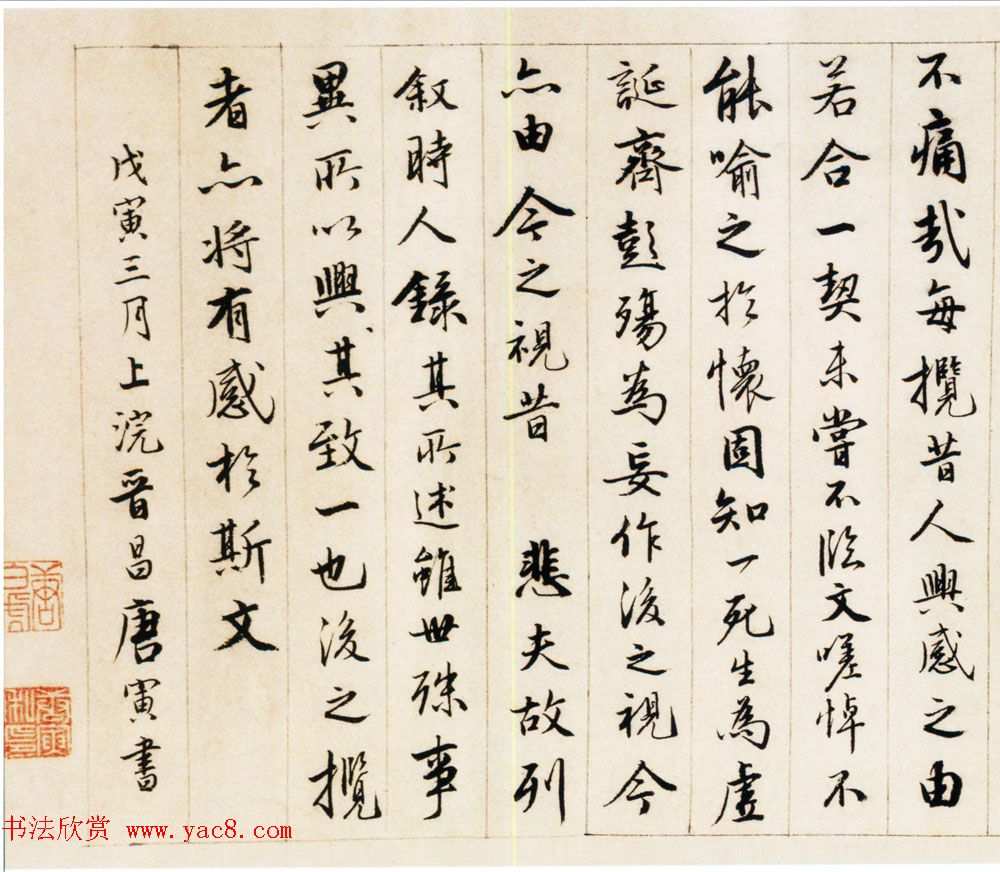 不痛哉每攬昔人興感之由
若合一契未嘗不臨文嗟悼不
能喻之於懷固知一死生為虛
誕齊彭殤為妄作後之視今
亦由今之視昔 悲夫故列
叙時人錄其所述雖世殊事
異所以興其致一也後之攬
者亦將有感於斯文
戊寅三月上浣晉昌唐寅書
书法欣赏 www.yac8.com